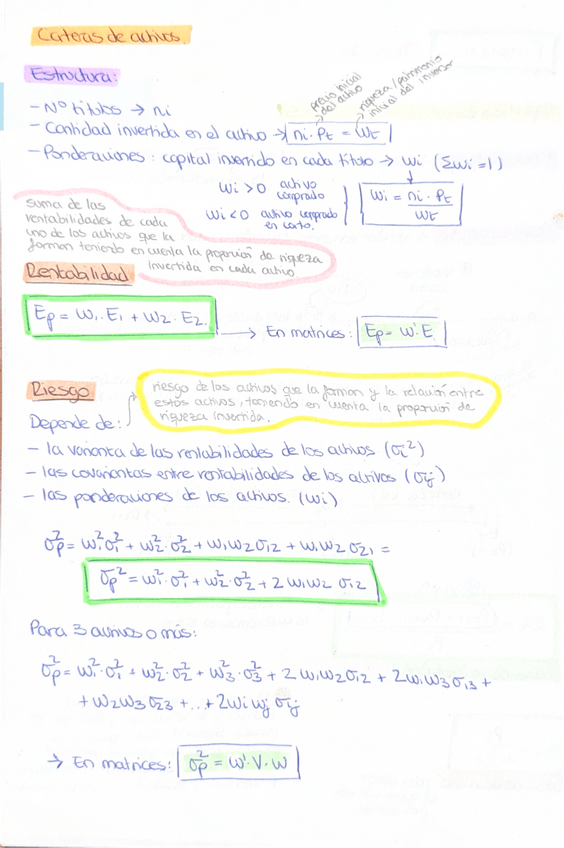 Carteras de activos.
Estructura:
precio inicial del activo
riqueza/patrimonio inicial del inversor
- Nº títulos → ni
- Cantidad invertida en el activo → ni · Pt = Wt
- Ponderaciones: capital invertido en cada título → wi (Σwi = 1)
wi > 0 activo comprado
wi < 0 activo comprado en corto.
wi = ni · Pt / Wt
suma de las
rentabilidades de cada
uno de los activos que la
forman teniendo en cuenta la proporción de riqueza
invertida en cada activo.
Rentabilidad
Ep = w1 · E1 + w2 · E2. → En matrices: Ep = w' E.
Riesgo
riesgo de los activos que la forman y la relación entre
estos activos, teniendo en cuenta la proporción de
riqueza invertida.
Depende de:
- la varianza de las rentabilidades de los activos (σi²)
- las covarianzas entre rentabilidades de los activos (σij)
- las ponderaciones de los activos. (wi)
σp² = w1² · σ1² + w2² · σ2² + w1 w2 σ12 + w1 w2 σ21 =
σp² = w1² · σ1² + w2² · σ2² + 2 w1 w2 σ12
Para 3 activos o más:
σp² = w1² · σ1² + w2² · σ2² + w3² · σ3² + 2 w1 w2 σ12 + 2 w1 w3 σ13 +
+ w2 w3 σ23 + ... + 2 wi wj σij
→ En matrices: σp² = w' · V · w